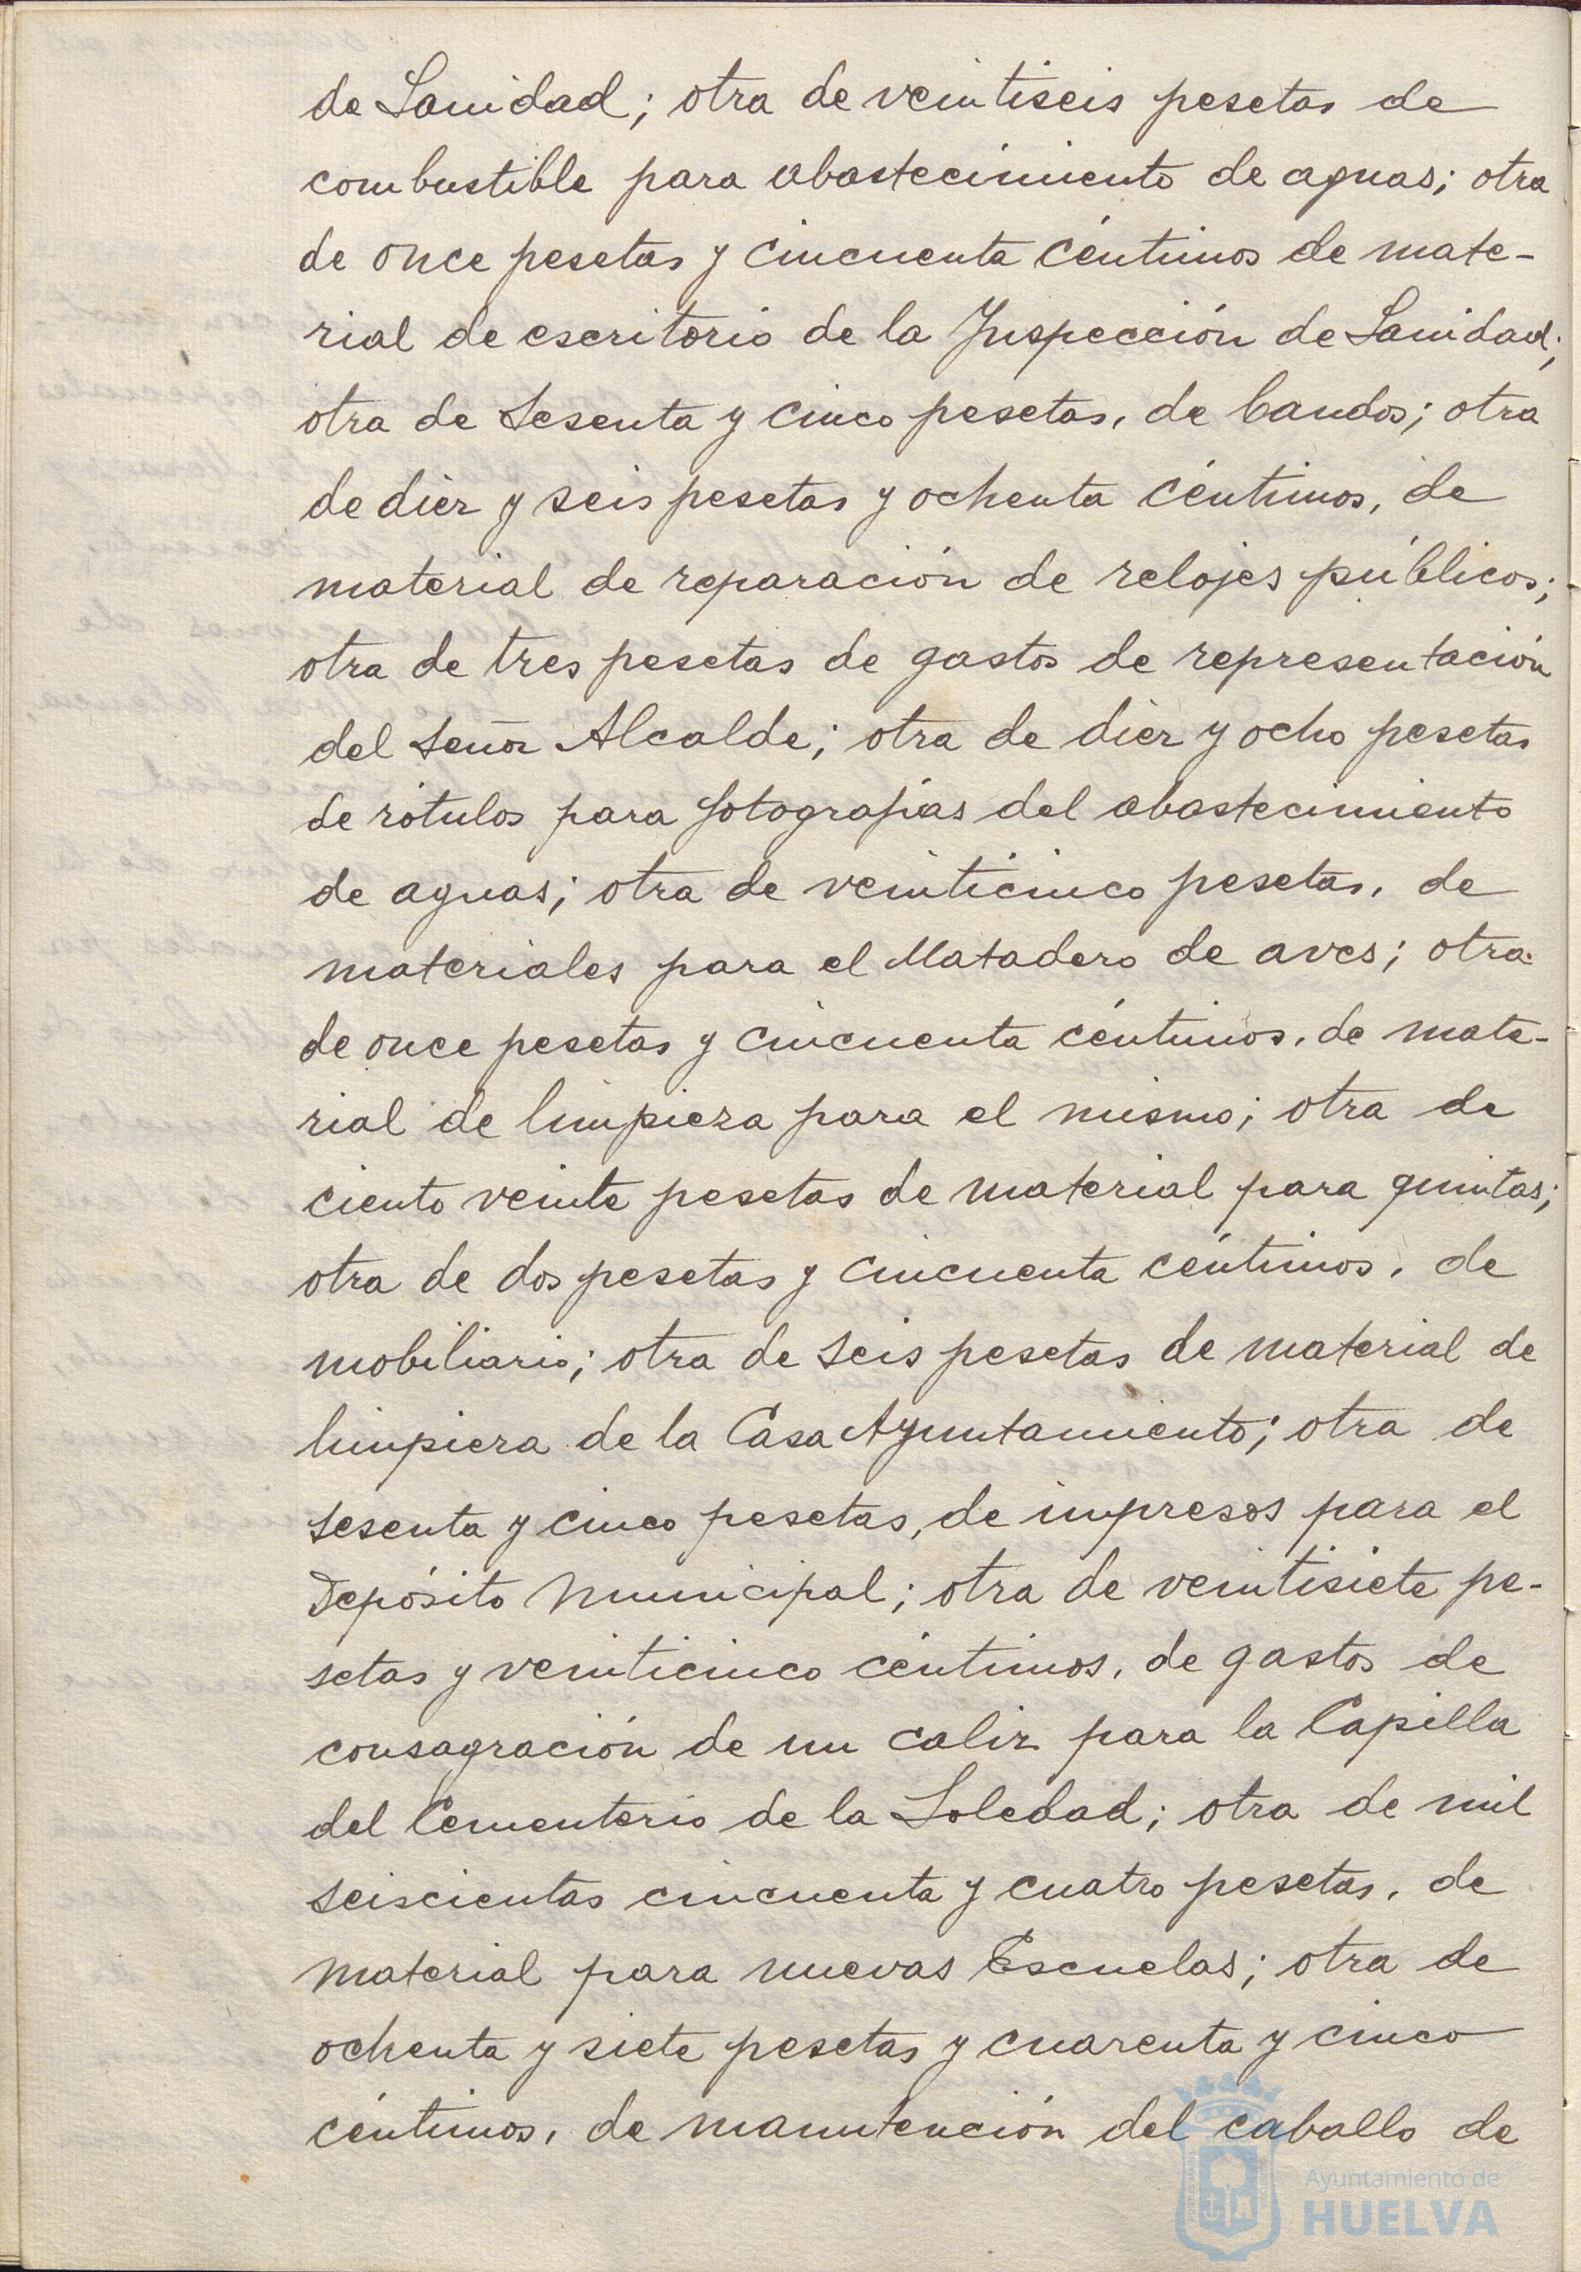 de Sanidad; otra de veintiseis pesetas de
combustible para abastecimiento de aguas; otra
de once pesetas y cincuenta céntimos de mate-
rial de escritorio de la Inspección de Sanidad;
otra de sesenta y cinco pesetas, de bandos; otra
de diez y seis pesetas y ochenta céntimos, de
material de reparación de relojes públicos;
otra de tres pesetas de gastos de representación
del señor Alcalde; otra de diez y ocho pesetas
de rótulos para fotografías del abastecimiento
de aguas; otra de veinticinco pesetas, de
materiales para el Matadero de aves; otra
de once pesetas y cincuenta céntimos, de mate-
rial de limpieza para el mismo; otra de
ciento veinte pesetas de material para quintas;
otra de dos pesetas y cincuenta céntimos, de
mobiliario; otra de seis pesetas de material de
limpieza de la Casa Ayuntamiento; otra de
sesenta y cinco pesetas, de impresos para el
Depósito Municipal; otra de veintisiete pe-
setas y veinticinco céntimos, de gastos de
consagración de un caliz para la Capilla
del Cementerio de la Soledad; otra de mil
seiscientas cincuenta y cuatro pesetas, de
material para nuevas Escuelas; otra de
ochenta y siete pesetas y cuarenta y cinco
céntimos, de manutención del caballo de
Ayuntamiento de
HUELVA